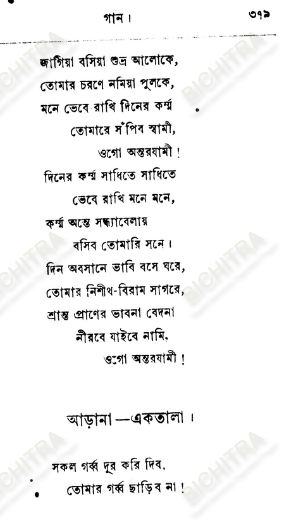 গান।
৩৭৯
জাগিয়া বসিয়া শুভ্র আলোকে,
তোমার চরণে নমিয়া পুলকে,
মনে ভেবে রাখি দিনের কর্ম্ম
তোমারে সঁপিব স্বামী,
ওগো অন্তরযামী!
দিনের কর্ম্ম সাধিতে সাধিতে
ভেবে রাখি মনে মনে,
কর্ম্ম অন্তে সন্ধ্যাবেলায়
বসিব তোমারি সনে।
দিন অবসানে ভাবি বসে ঘরে,
তোমার নিশীথ-বিরাম সাগরে,
শ্রান্ত প্রাণের ভাবনা বেদনা
নীরবে যাইবে নামি,
ওগো অন্তরযামী!
আড়ানা—একতালা।
সকল গর্ব্ব দূর করি দিব,
তোমার গর্ব্ব ছাড়িব না!
BICHITRA
BICHITRA
BICHITRA
BICHITRA